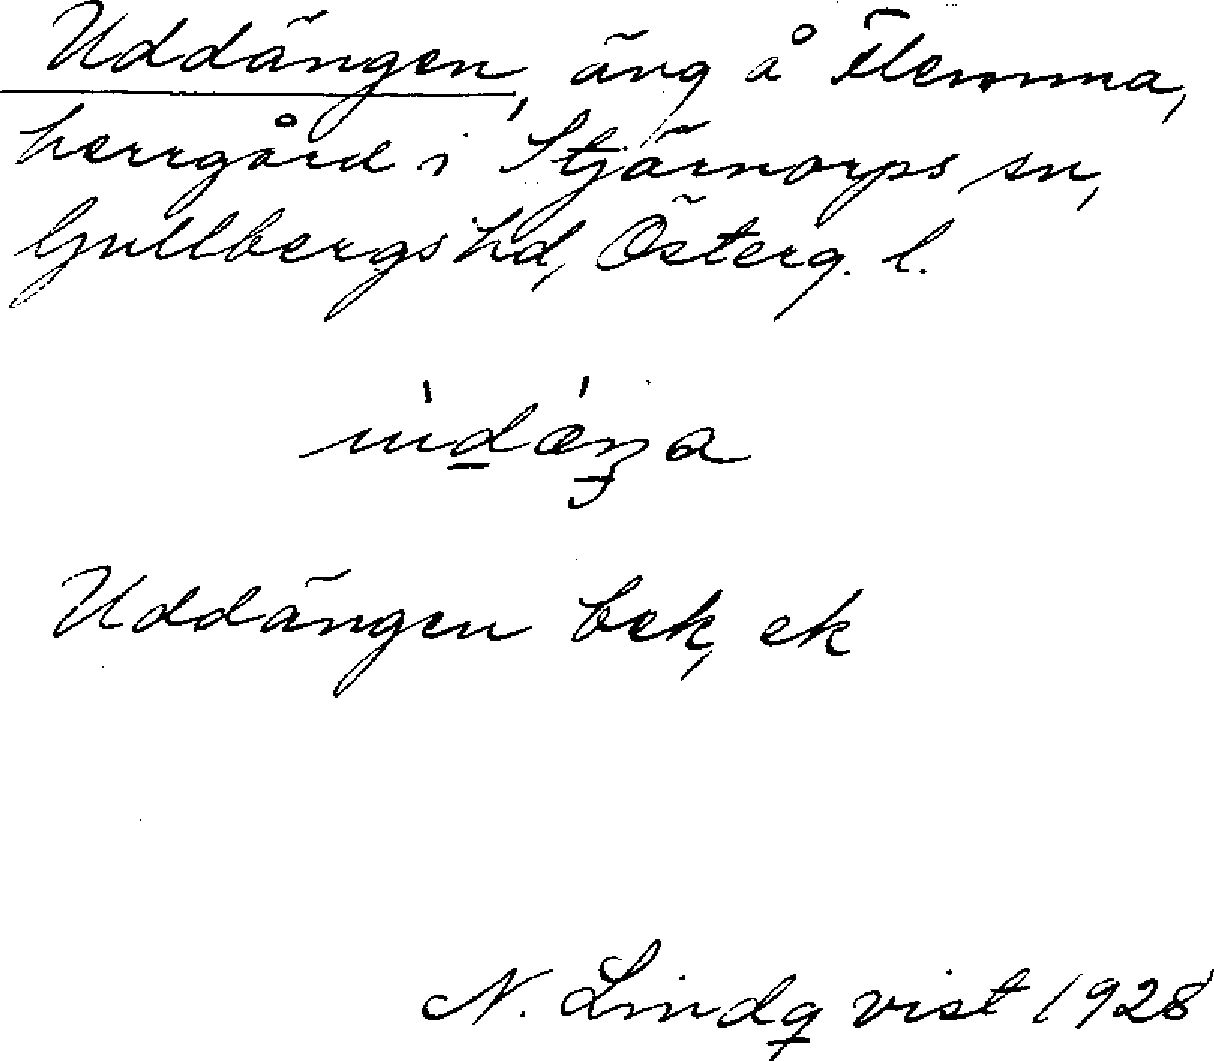 Uddängen, äng å Flemma,
herrgård i Stjärnorps sn,
Gullbergs hd, Österg. l.
Uddängen bek, ek
N. Lindqvist 1928